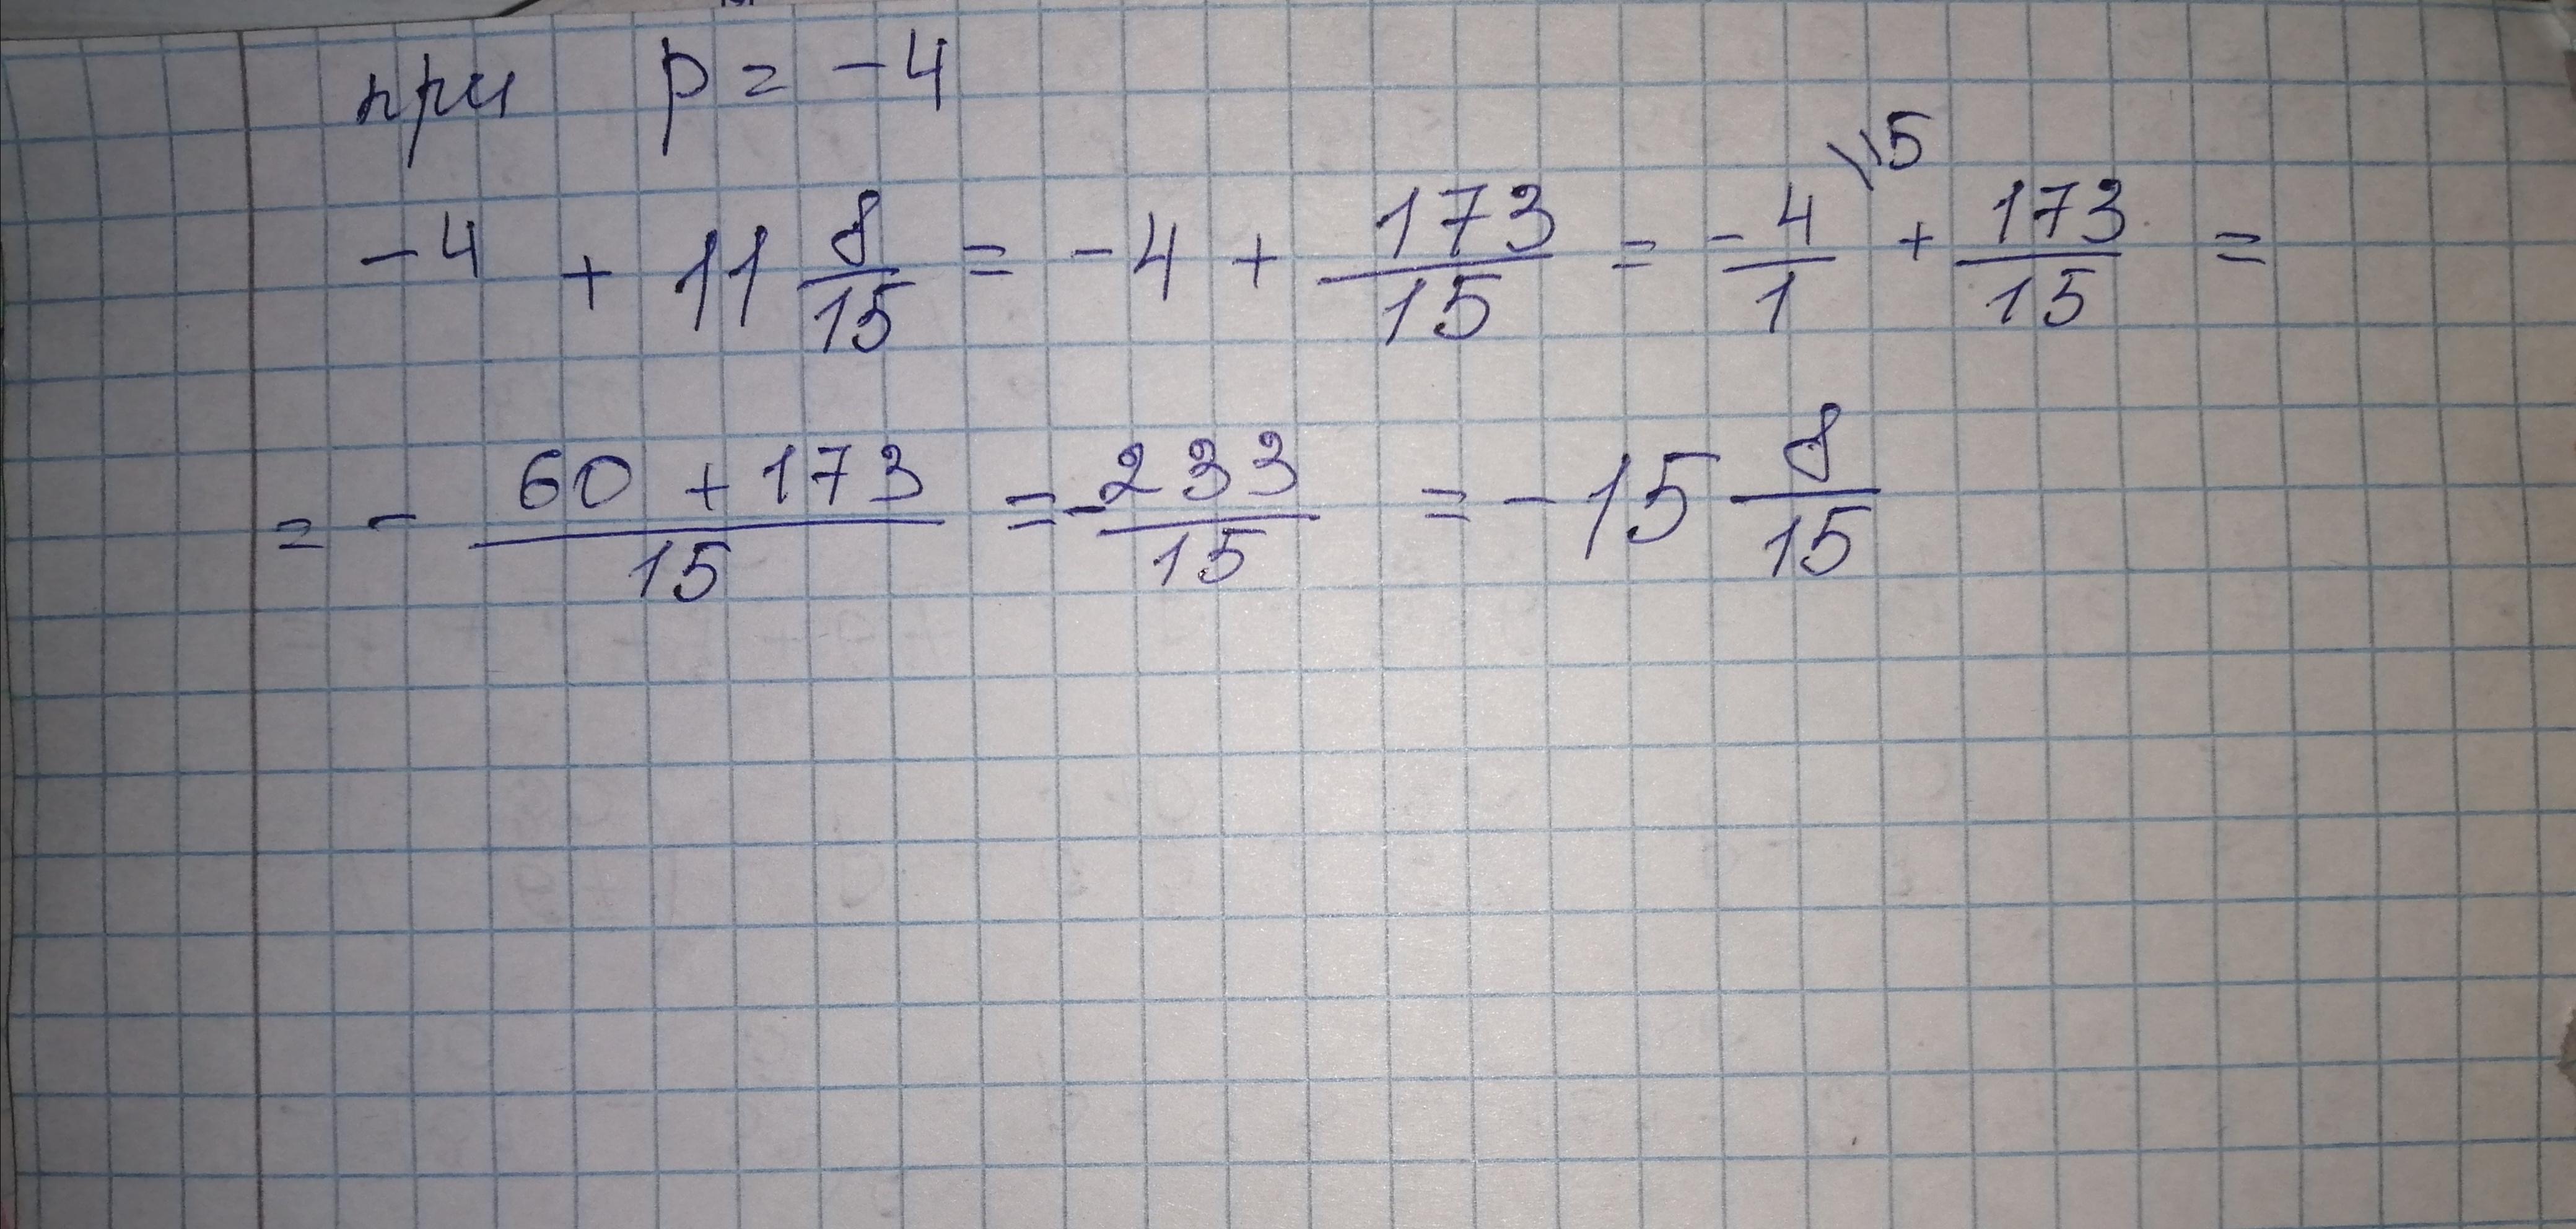 при p = -4
-4 + 11 8/15 = -4 + 173/15 = -4/1 \15 + 173/15 =
= - 60 + 173/15 = -233/15 = -15 8/15